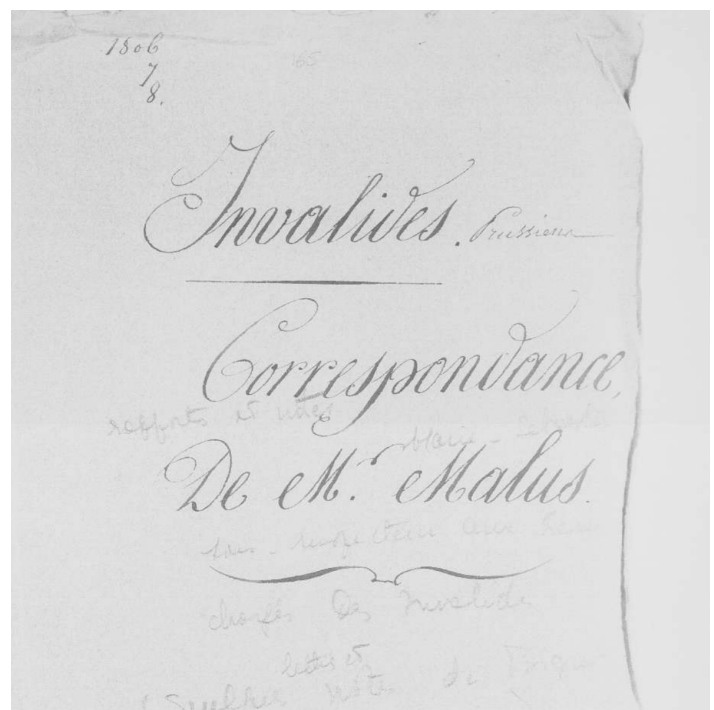 1806
7
8.
65
Invalides. Prussiens
Correspondance,
rapports et notes
De Mr. Malus.
sous-inspecteur aux
chargés des Invalides
lettres et
notes de